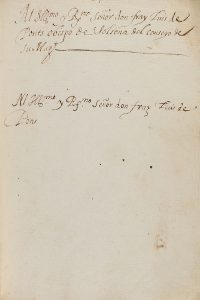 Al Illmo y Rmo Señor don fray Luis de
Pons obispo de Solsona del consejo de
su Magd
Al Illmo y Rmo Señor don fray Luis de
Pons